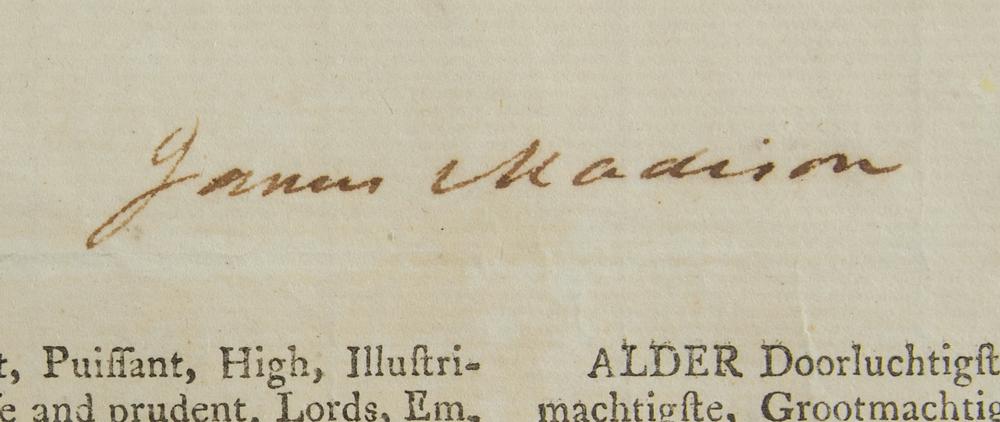 James Madison
t, Puiſſant, High, Illuſtri-
ſe and prudent, Lords, Em,
ALDER Doorluchtigſt
machtigſte, Grootmachtig